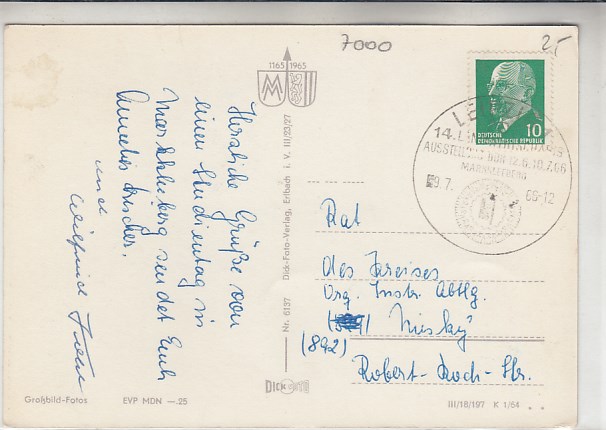 7000
25,-
1165 1965
Herzliche Grüße von
einem Studientag in
Markkleeberg sendet Euch
Annelis
und
Wilfried
Dick-Foto-Verlag, Erlbach i. V. III/23/27
Nr. 6137
DICK FOTO
10
DEUTSCHE
DEMOKRATISCHE REPUBLIK
14. LANDWIRTSCHAFTS
AUSSTELLUNG DDR 12.6.-10.7.66
MARKKLEEBERG
9.7. 66-12
Rat
des Kreises
Org. Instr. Abtlg.
Niesky
(892)
Robert-Koch-Str.
Großbild-Fotos
EVP MDN —.25
III/18/197 K 1/64